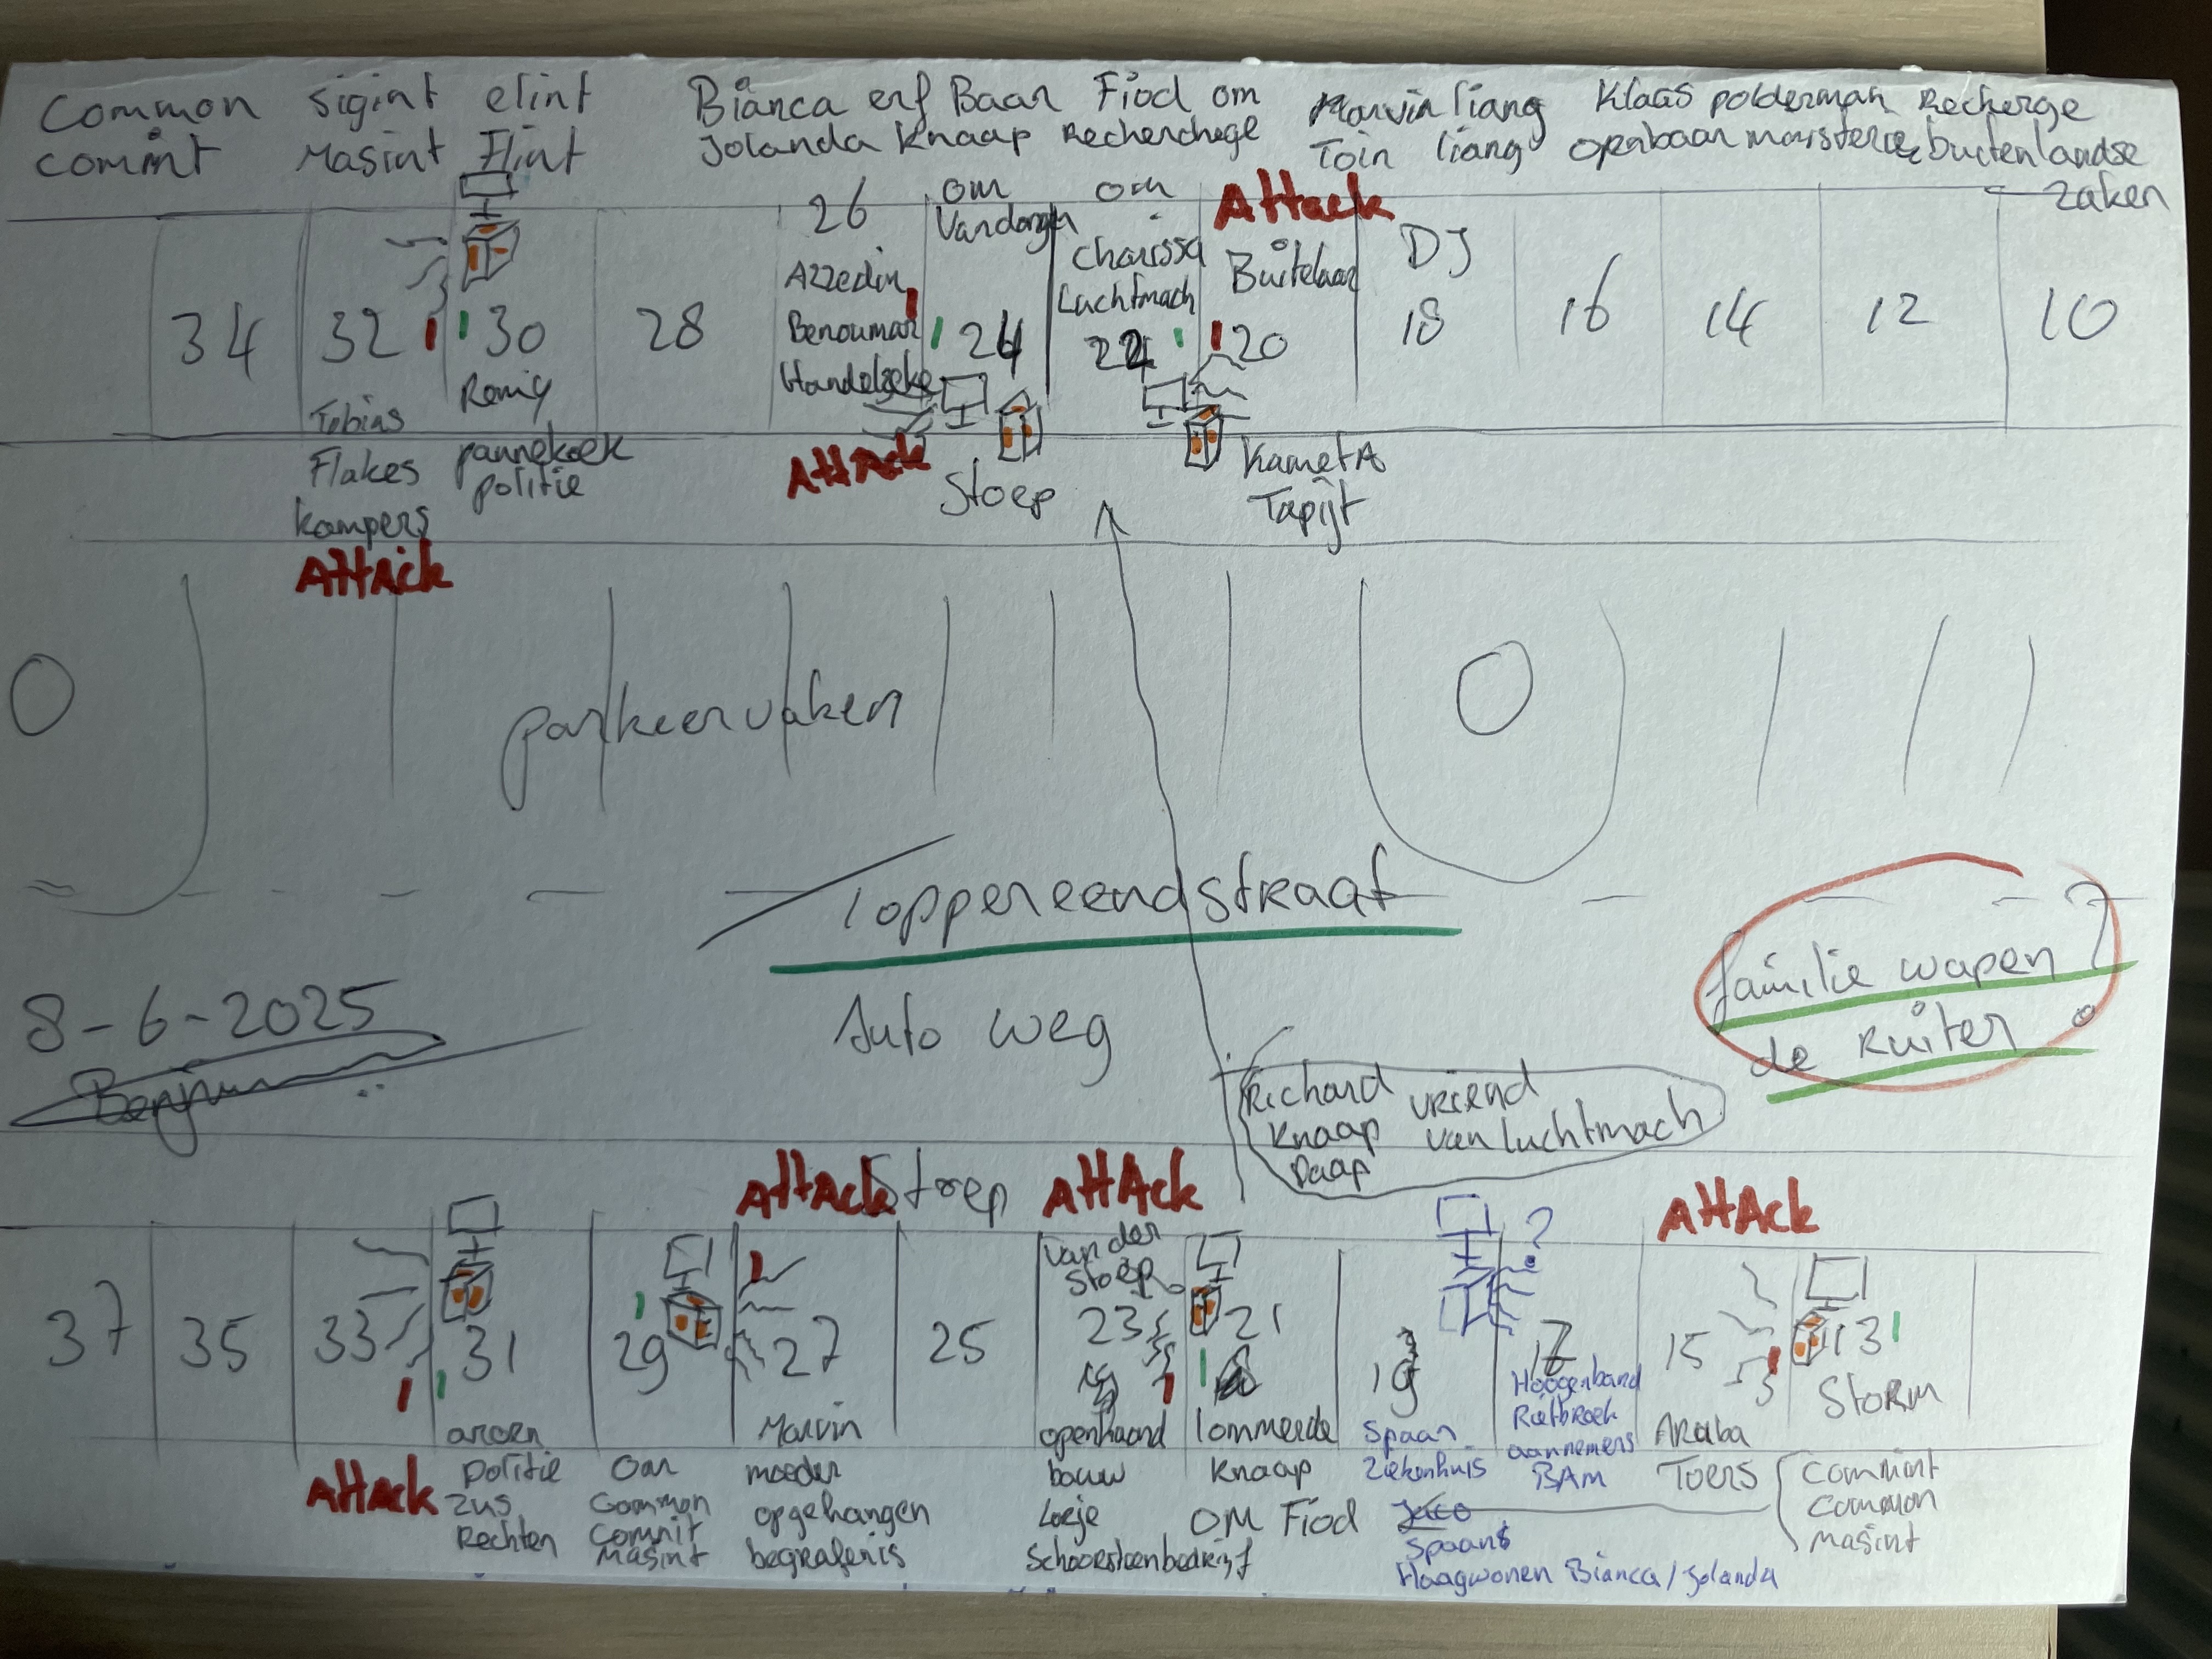 Common sigint elint
comint Masint Flint
Bianca erf Baan Fiod om
Jolanda Knaap Recherchege
Marvin liang
Toin liang
Klaas polderman Recherge
opabaan
buitenlandse
zaken
26 om om Attack
Vandongen
DJ
Azzedin
Benoumar
Charissa
Luchtmach
Buitelaar
34 32 30 28 24 22 20 18 16 14 12 10
Tobias
Flakes
kampers
Attack
Remy
pannekoek
politie
Attack
Stoep
Kamet A
Tapijt
O
parkeervaken
O
Toppereendstraat
familie wapen ?
de Ruiter
8-6-2025
Auto weg
Richard vriend
Knaap van luchtmach
Daap
Attack Stoep Attack Attack
van der
Stoep
?
37 35 33 31 29 27 25 23 21 19 17 15 13
Attack
politie
zus
Rechten
Common
Comnit
Masint
Marvin
moeder
opgehangen
begrafenis
openhaard
bouw
Loeje
Schoorsteenbedrijf
lommerde
Knaap
OM Fiod
Spaan
Ziekenhuis
Hoogenband
Rietbroek
aannemers
BAM
Jaco
Spaans
Haagwonen Bianca/Jolanda
Araba
Toers
Storm
Commint
Common
Masint